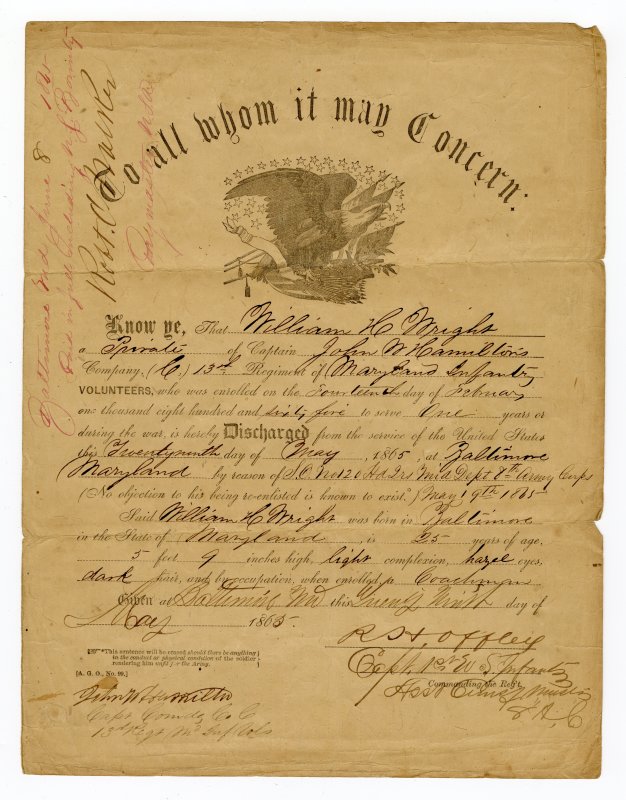 Baltimore Md June 8 1865
Paid in full including U.S. Bounty
Robt.
Paymaster USA
To all whom it may Concern:
Know ye, That William H Wright
a Private of Captain John W Hamilton's
Company, (C,) 13th Regiment of Maryland Infantry
VOLUNTEERS, who was enrolled on the Fourteenth day of February
one thousand eight hundred and sixty five to serve One years or
during the war, is hereby Discharged from the service of the United States
this Twentyninth day of May, 1865, at Baltimore
Maryland by reason of S.O. No 120 Hd Qrs Mid Dept 8th Army Corps
(No objection to his being re-enlisted is known to exist.) May 19th 1865
Said William H Wright was born in Baltimore
in the State of Maryland, is 25 years of age,
5 feet 9 inches high, light complexion, hazel eyes,
dark hair, and by occupation, when enrolled, a Coachman
Given at Baltimore Md this Twenty Ninth day of
May 1865.
R S Offley
Capt. 1st U S Infantry
Commanding the Reg't.
8 A. C
☞ This sentence will be erased should there be anything
in the conduct or physical condition of the soldier
rendering him unfit for the Army.
[A. G. O., No. 99.]
John W Hamilton
Capt Comdg Co C
13th Regt Md Inf Vols